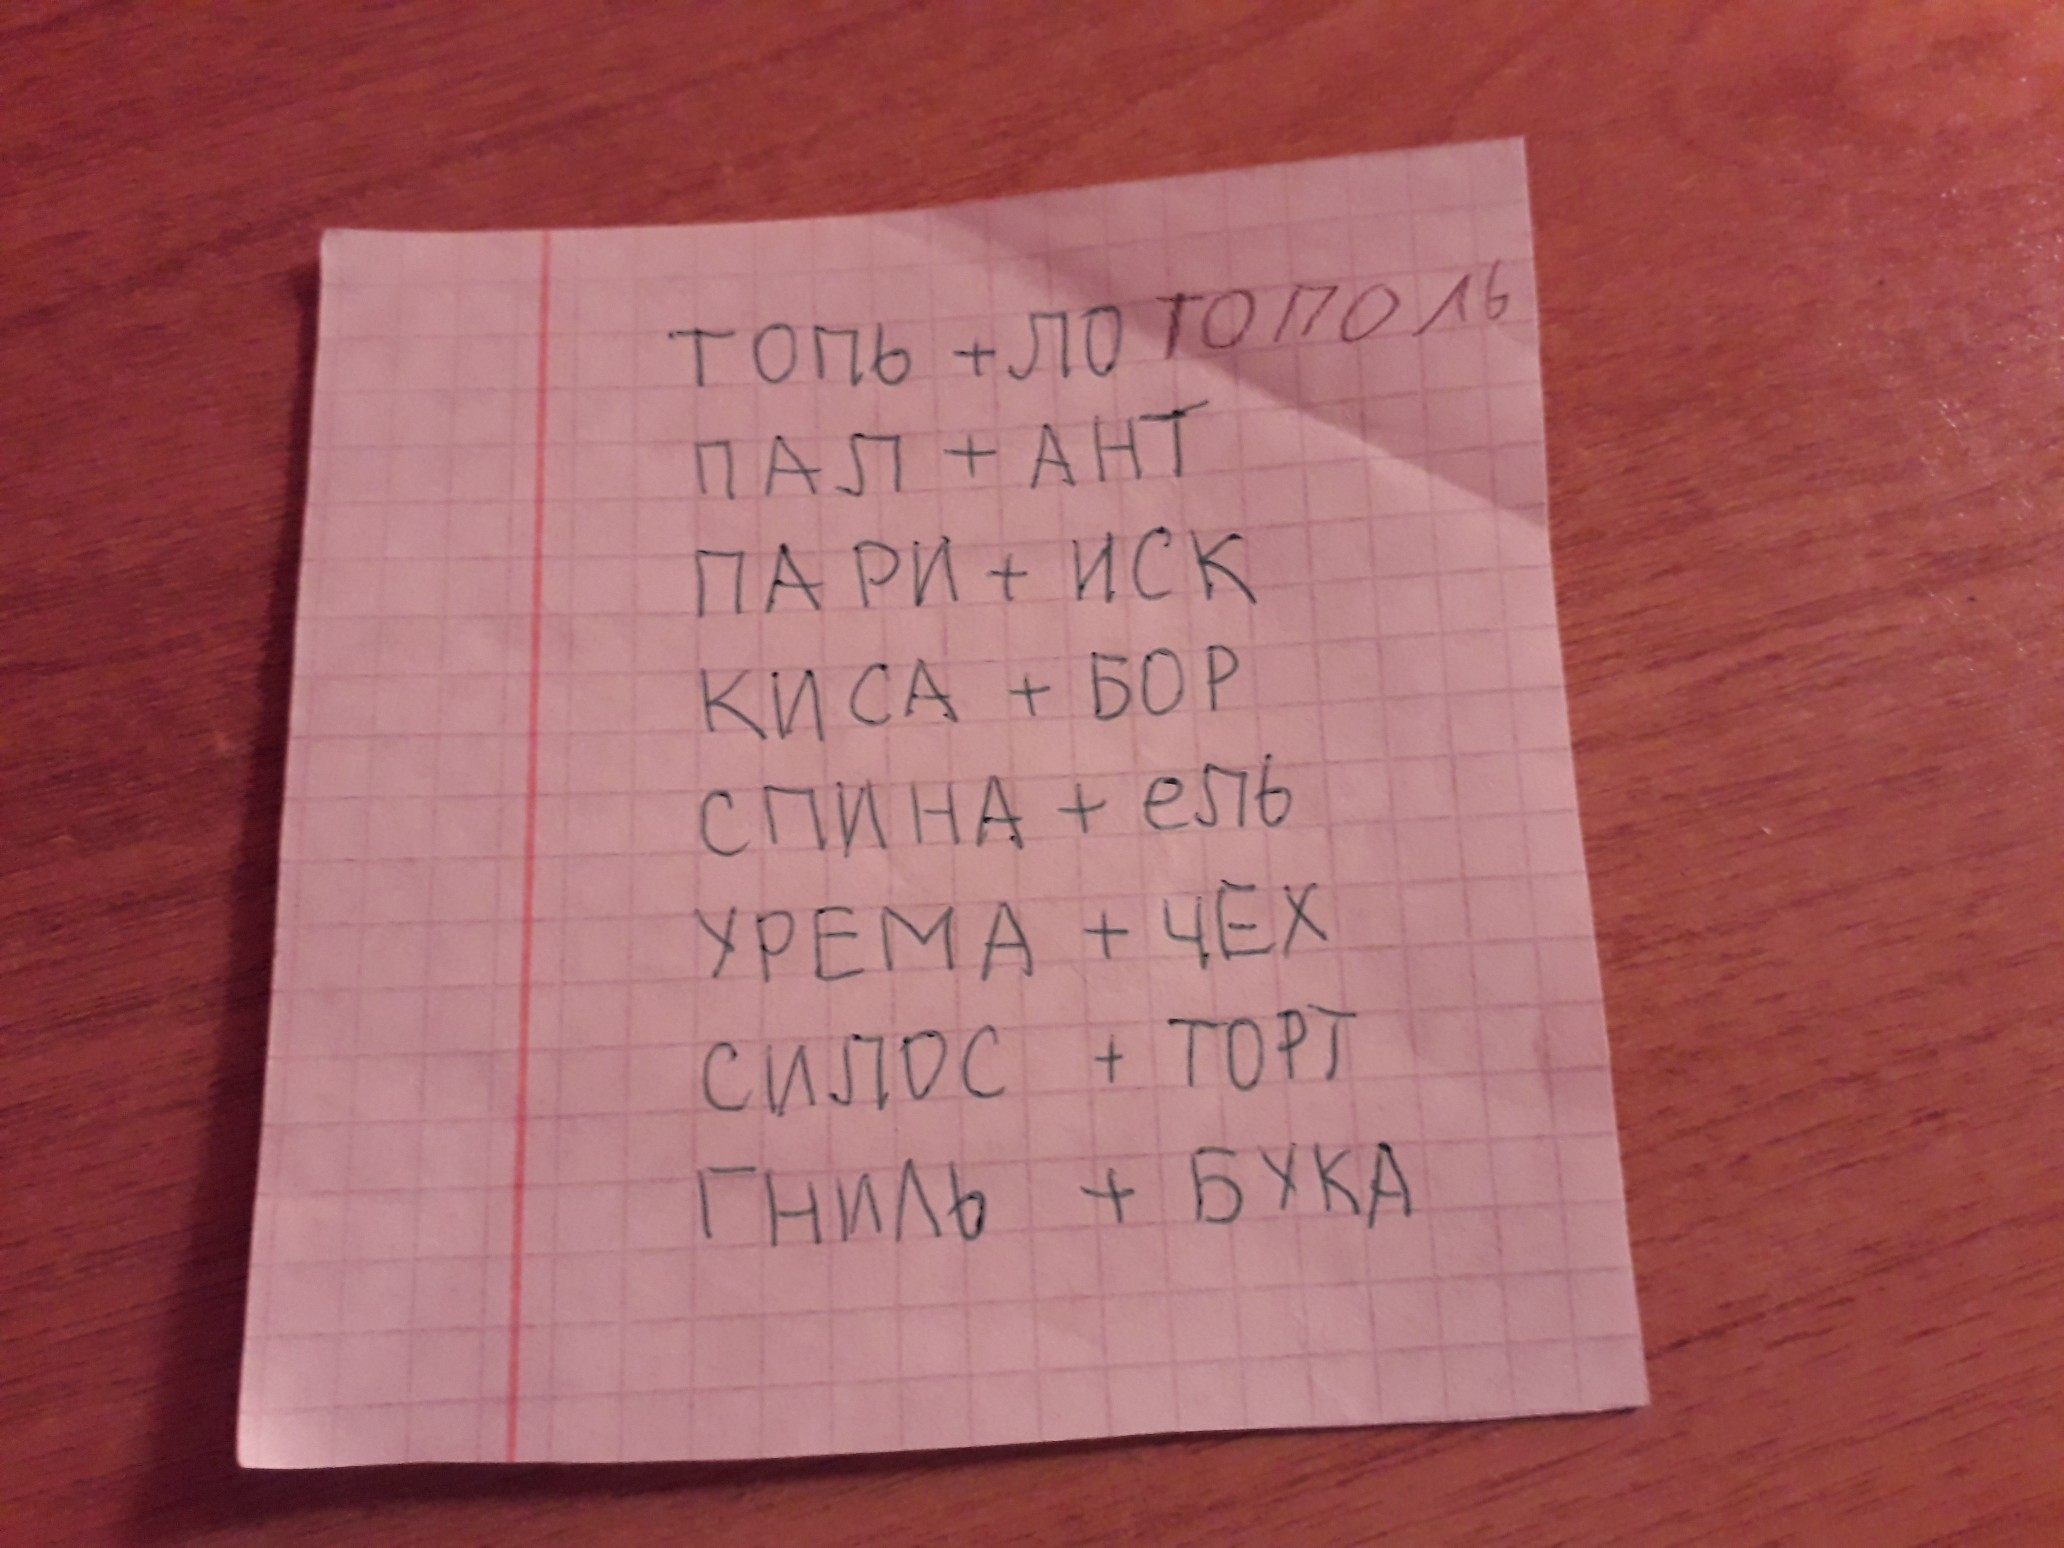 ТОПЬ + ЛО ТОПОЛЬ
ПАЛ + АНТ
ПАРИ + ИСК
КИСА + БОР
СПИНА + ель
УРЕМА + ЧЕХ
СИЛОС + ТОРТ
ГНИЛЬ + БУКА